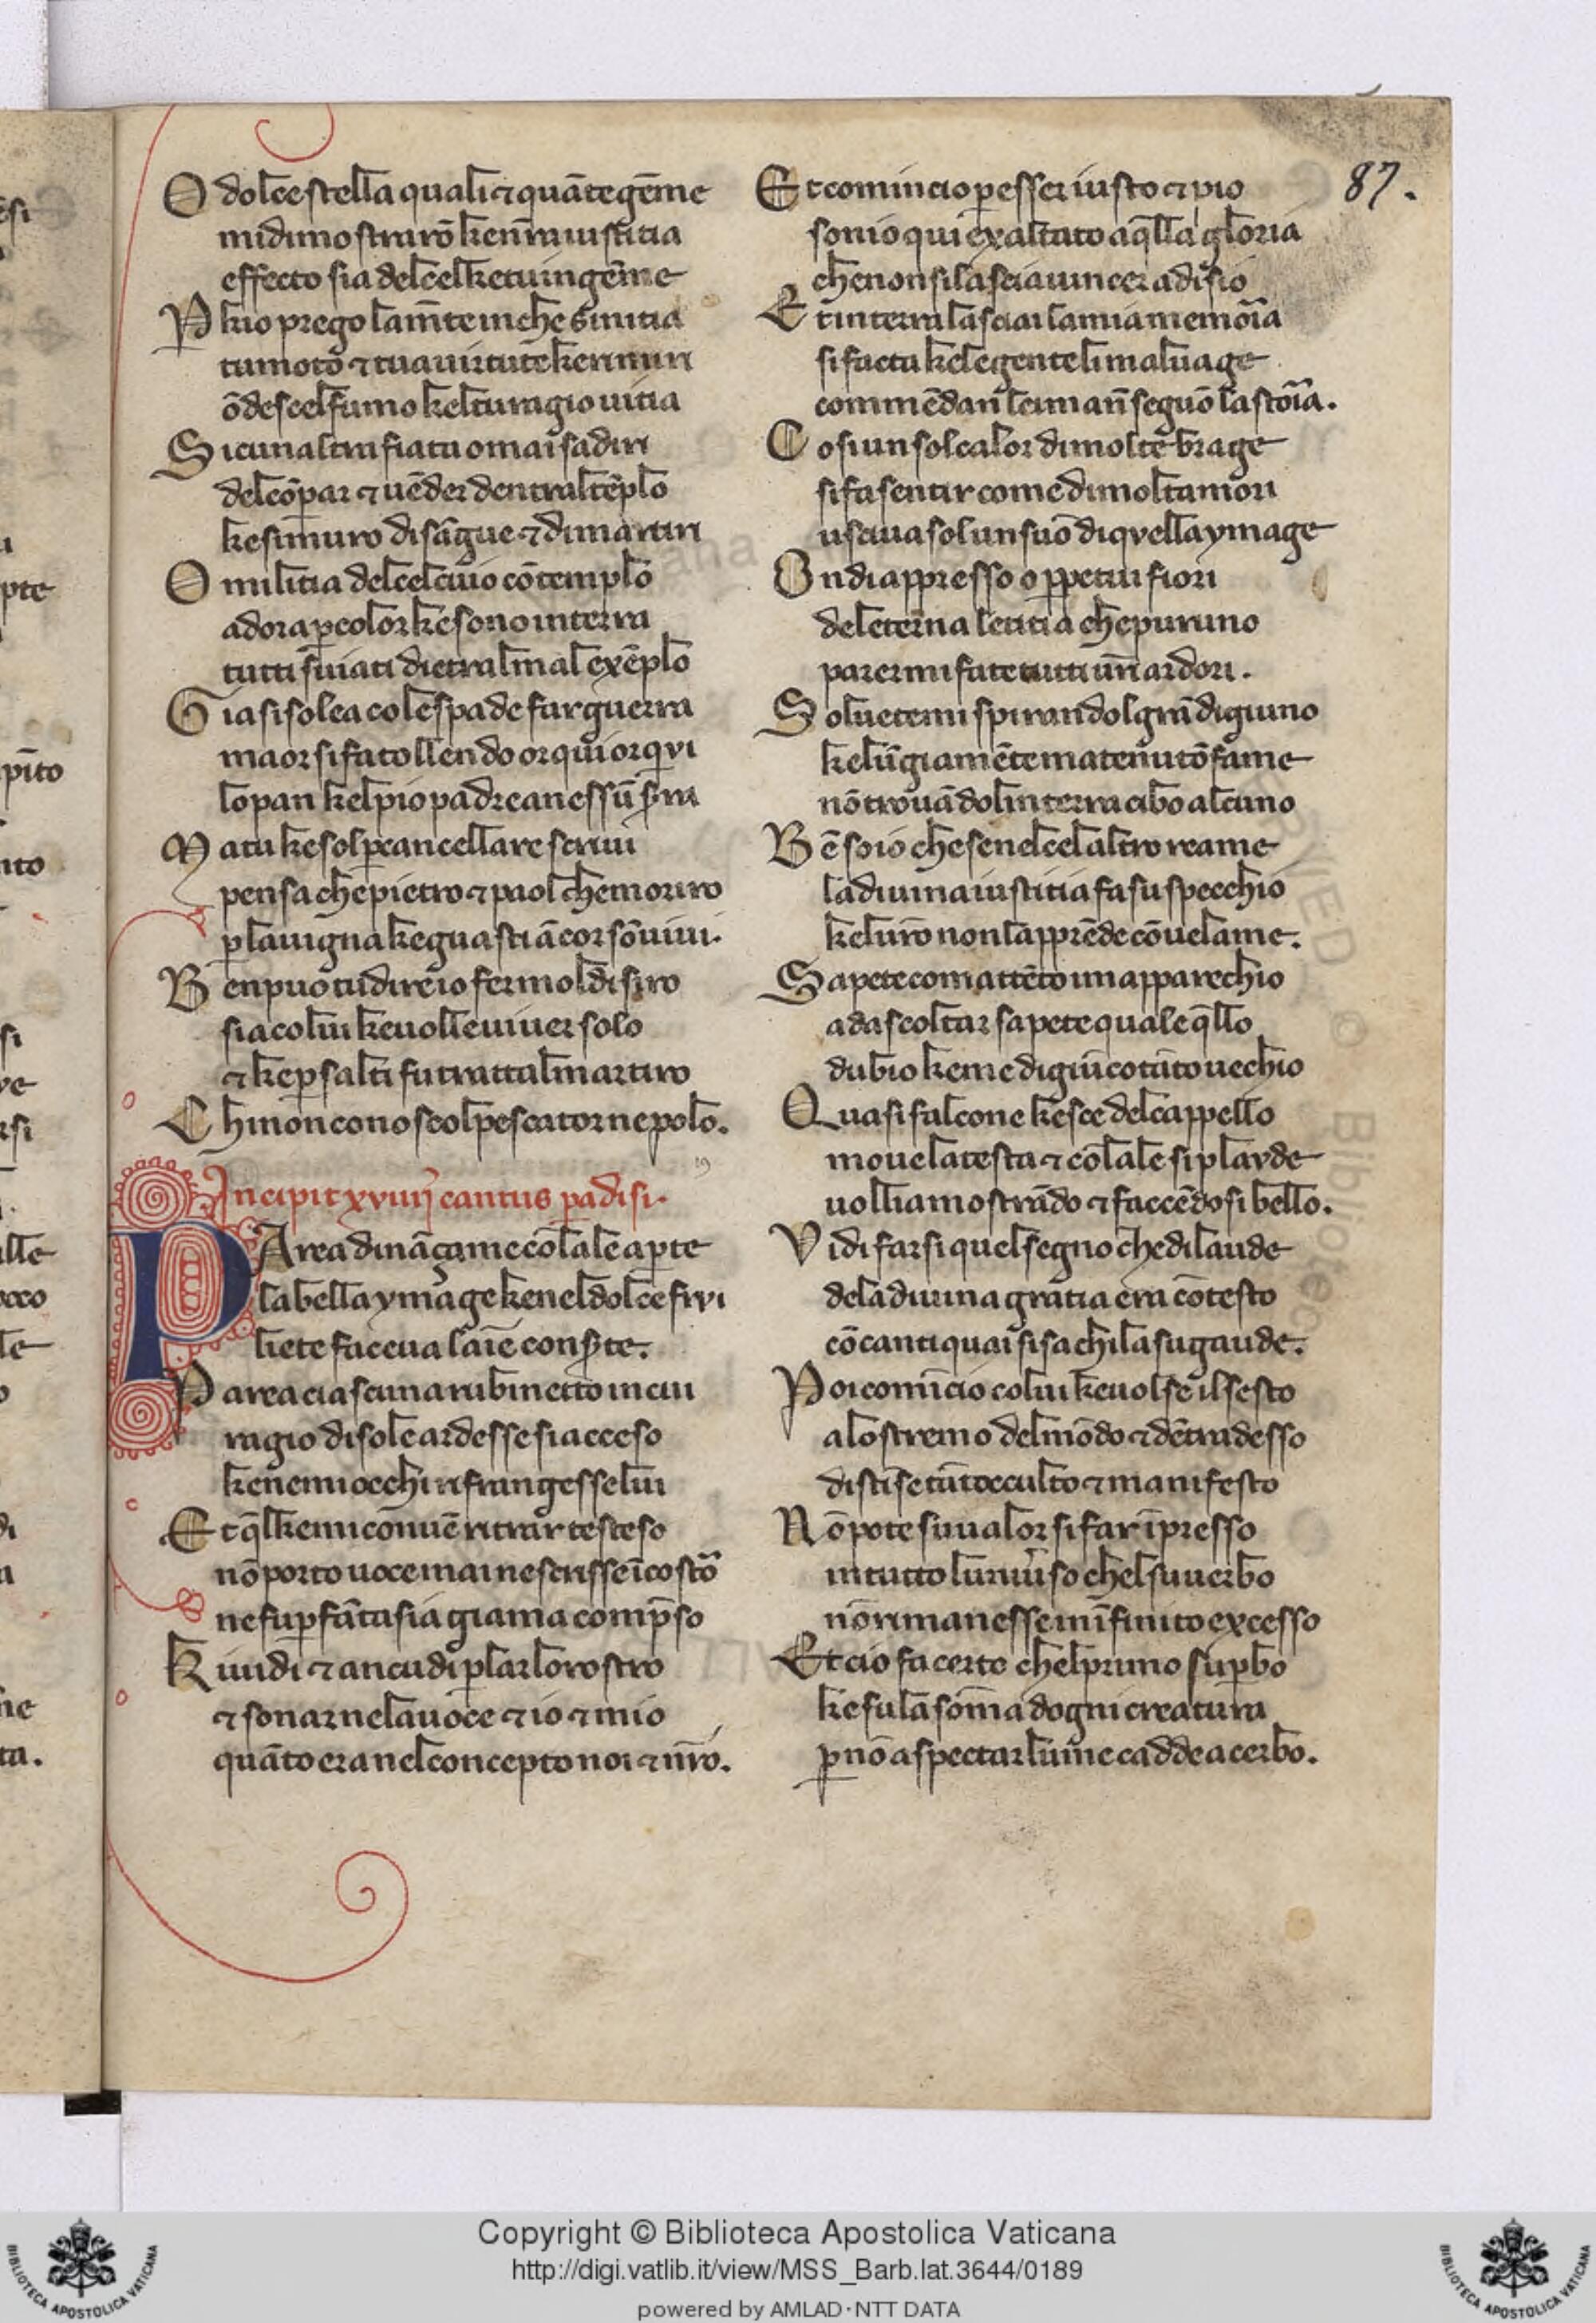 O dolce stella quali ⁊ quāte gēme
mi dimostrarō ke nr̄a iustitia
effecto sia del cel ke tu ingēme
P kio prego la mt̄e in che sinitia
tu moto ⁊ tua uirtute ke rimiri
ōdescel fumo kel tu ragio uitia
S i cunaltra fiata omai sadiri
del cōpar ⁊ uēder dentral tēplo
ke si muro di sāgue ⁊ di martiri
O militia del cel cuio cōtemplo
adora p color ke sono in terra
tutti suiati dietral mal exēplo
G ia si solea cole spade far guerra
ma or si fa tollendo or qui or qvi
lo pan kel pio padre a nessū s̄ra
M a tu ke sol p cancellare scriui
pensa che pietro ⁊ paol che moriro
p la uigna ke guasti ācor sō uiui.
B en puo tu dire io fermol disiro
si a colui ke uolle uiuer solo
⁊ ke p salti fu trattal martiro
C hi non conoscol pescator ne polo.
Incipit xviiij cantus padisi.
PArea dināçame cō lale apte
la bella ymage ke nel dolce frvi
liete faceua laīe conste.
P area ciascuna rubinetto in cui
ragio di sole ardesse si acceso
ke ne mi occhi rifrangesse lui
E t ql ke mi conuē ritrar testeso
nō porto uoce mai ne scrisse īcostō
ne fu p fātasia giama compso
K i uidi ⁊ anc udi plar lo rostro
⁊ sonar nela uoce ⁊ io ⁊ mio
quāto era nel concepto noi ⁊ nr̄o.
E t comincio p esser iusto ⁊ pio
sonio qui exaltato a qlla gloria
che non si lascia uincer a disio
E t in terra lasciai la mia memoīa
si facta ke le gente li maluage
commēdan lei ma nn̄ seguō la stoīa.
C osi un sol calor di molte brage
si fa sentir come di molti amori
usciua sol un suō di qvella ymage
O ndi appresso o ppetui fiori
del eterna letitia che pur uno
parer mi fate tutti un̄ ardori.
S oluetemi spirando l grā digiuno
ke lūgiamēte ma tenuto ī fame
nō trouādoli in terra cibo alcuno
B ē so io che se nel cel altro reame
la diuina iustitia fa su specchio
kel urō non lapprēde cō uelame.
S apete com attēto im apparechio
ad ascoltar sapete quale qllo
dubio ke me digiū cotāto uechio
Q uasi falcone kesce del cappello
moue la testa ⁊ cō lale si plavde
uollia mostrādo ⁊ faccēdosi bello.
V idi farsi quel segno che di laude
dela diuina gratia era cōtesto
cō canti quai si sa chi la su gaude.
P oi comīcio colui ke uolse il sesto
alo stremo del mōdo ⁊ dētradesso
distīse tāto occulto ⁊ manifesto
N ō pote suualor si far īpresso
in tutto luniu̅so chel su uerbo
nō rimanesse in īfinito excesso
E t cio fa certo chel primo supbo
ke fu la som̄a dogni creatura
p nō aspectar lume cadde acerbo.
87.
Copyright © Biblioteca Apostolica Vaticana
http://digi.vatlib.it/view/MSS_Barb.lat.3644/0189
powered by AMLAD·NTT DATA
BIBLIOTECA APOSTOLICA VATICANA
BIBLIOTECA APOSTOLICA VATICANA